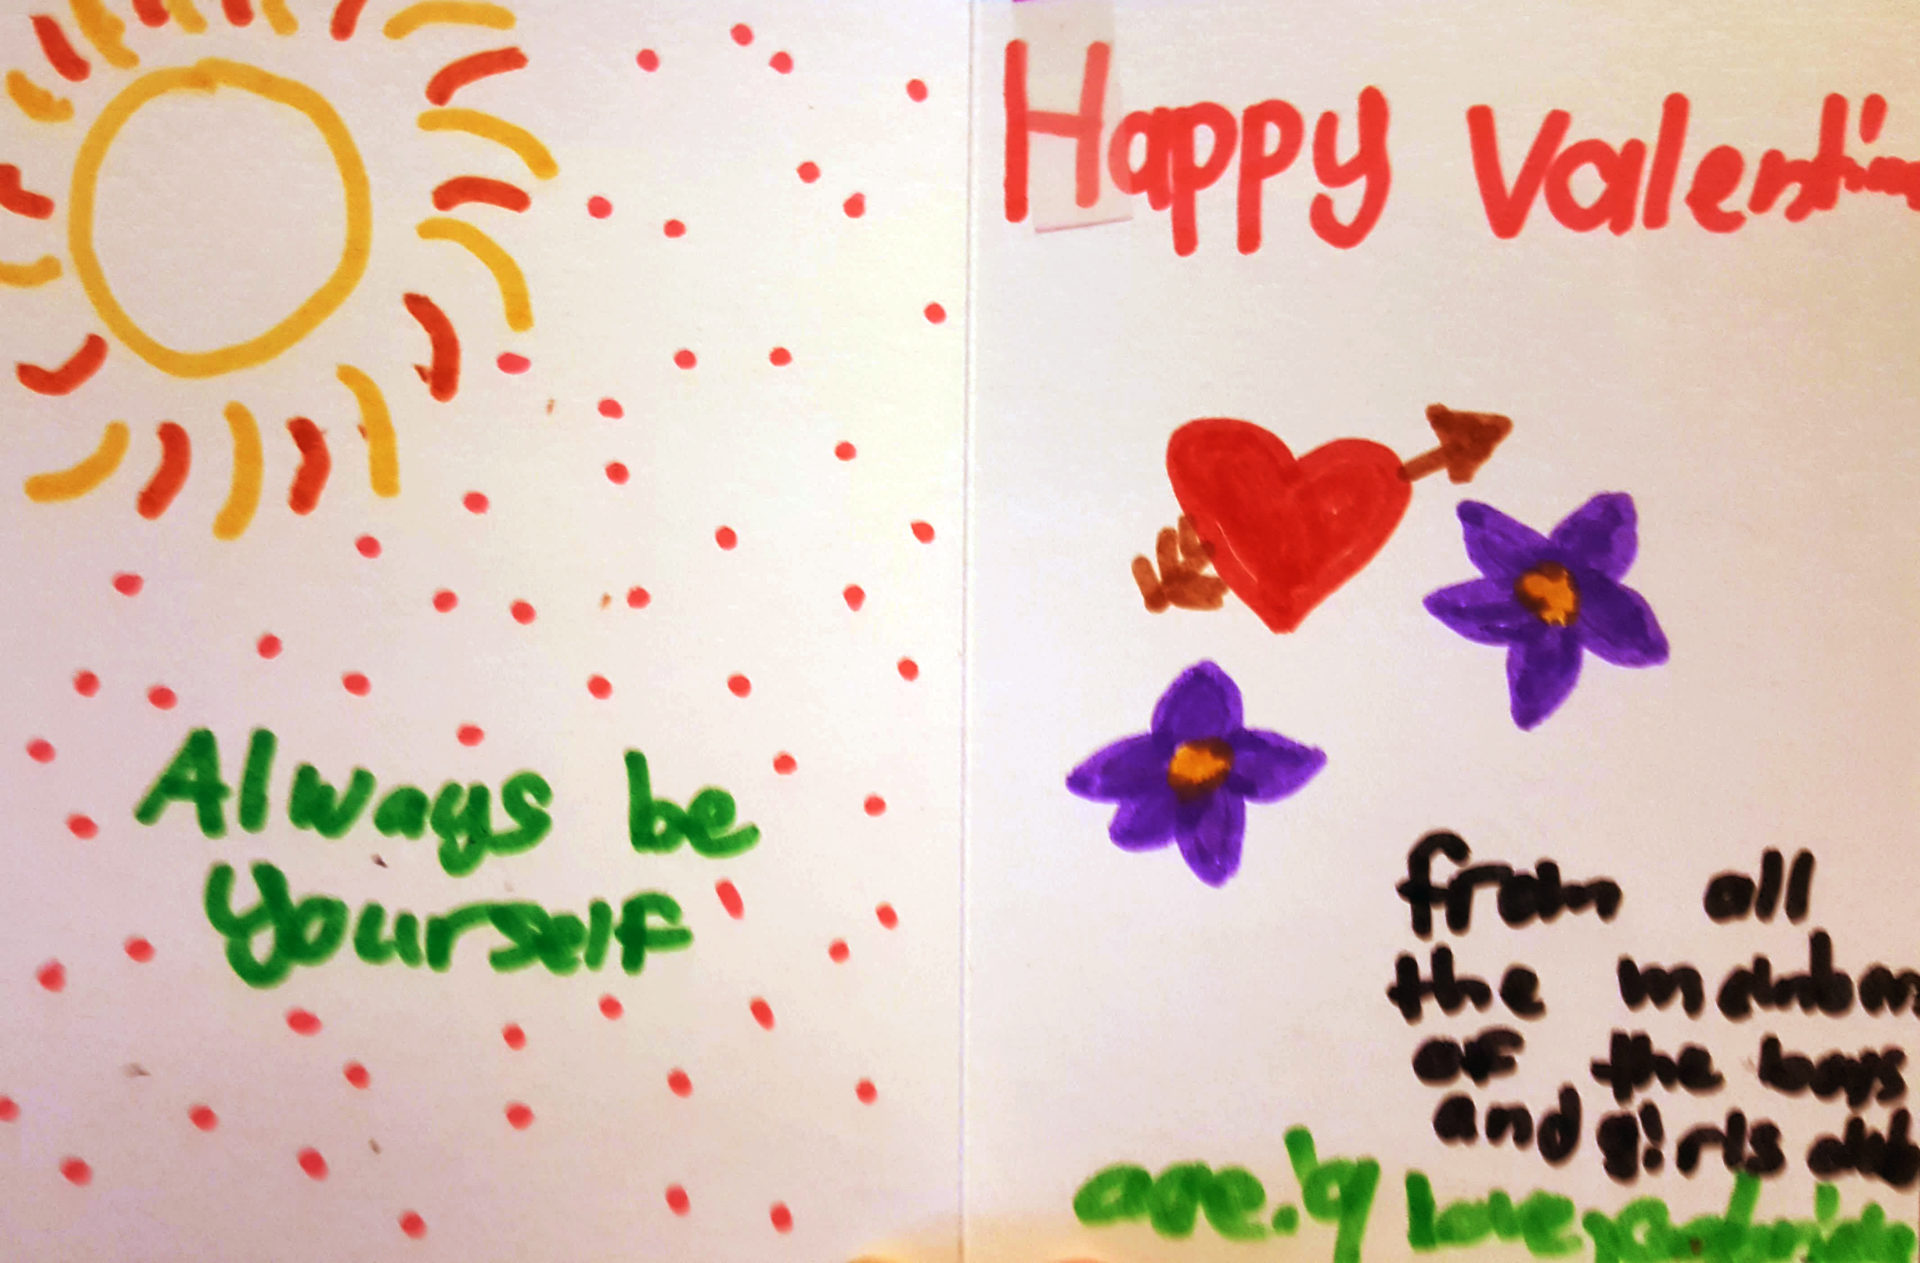 Always be
yourself
Happy Valentin
from all
the members
of the boys
and girls club
age: 9 Love,